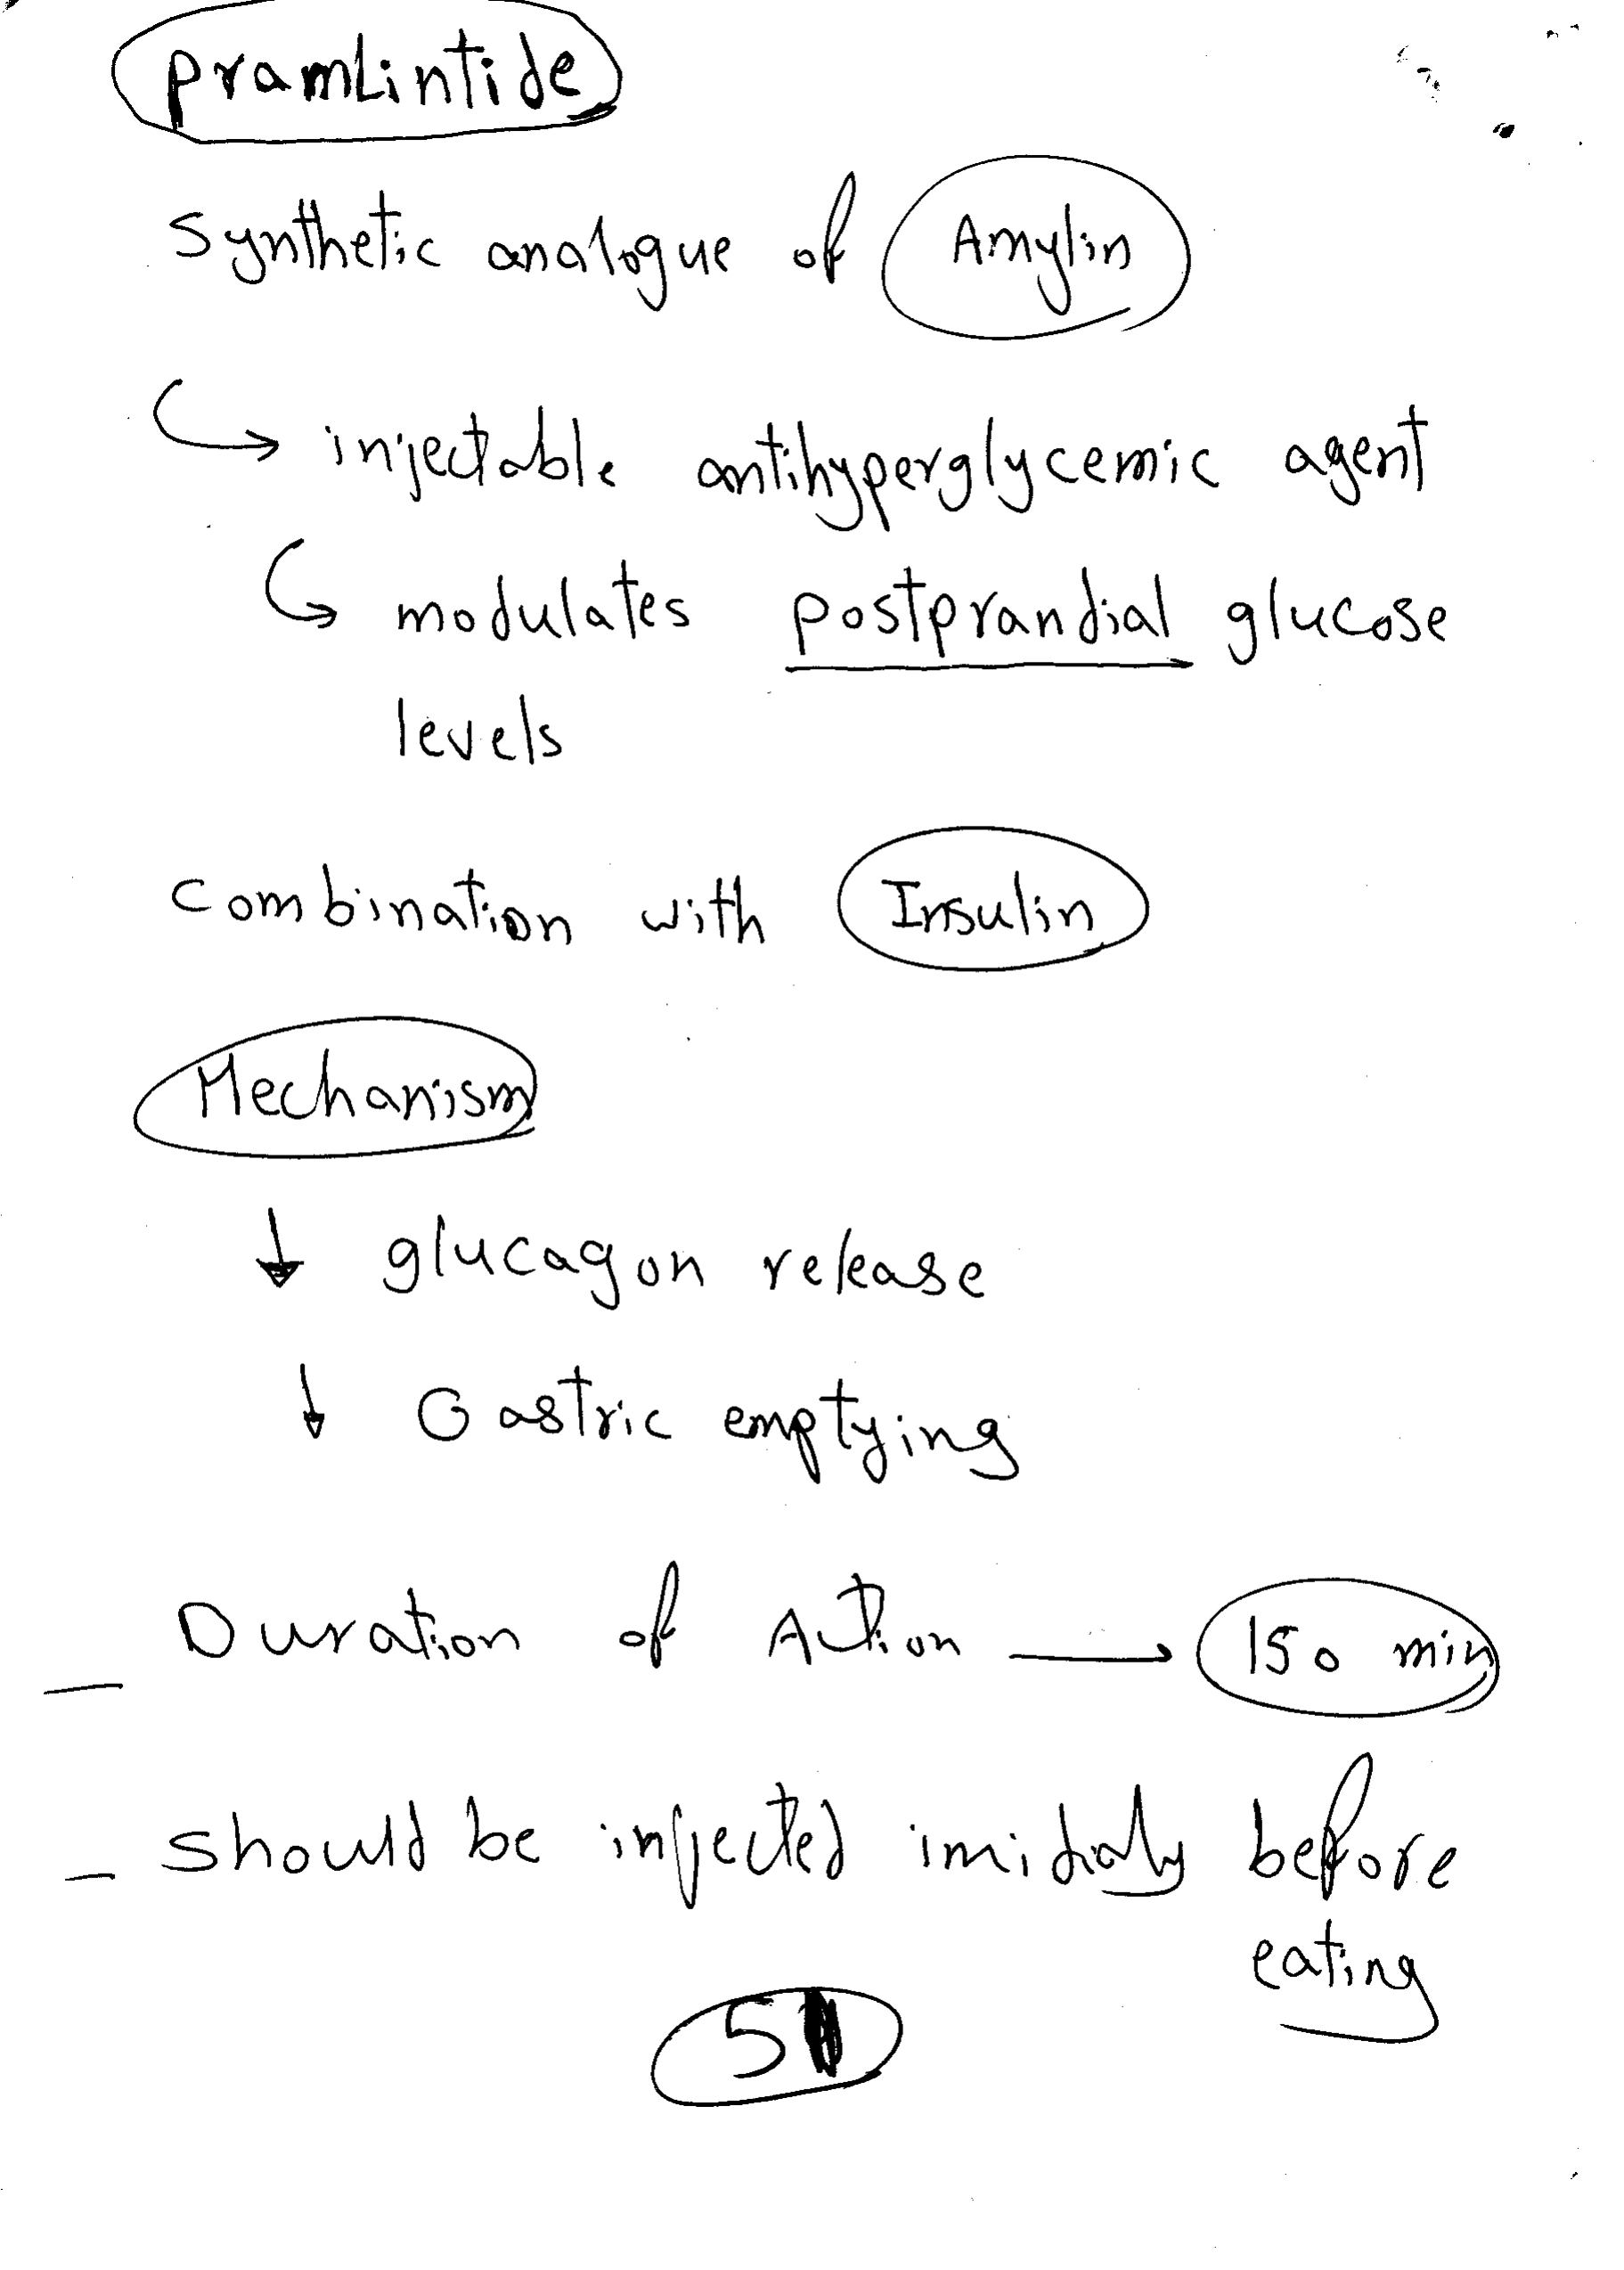 PramLintide
Synthetic analogue of Amylin
injectable antihyperglycemic agent
modulates postprandial glucose
levels
Combination with Insulin
Mechanism
↓ glucagon release
↓ Gastric emptying
— Duration of Action → 150 min
— should be injected imidialy before
eating
51